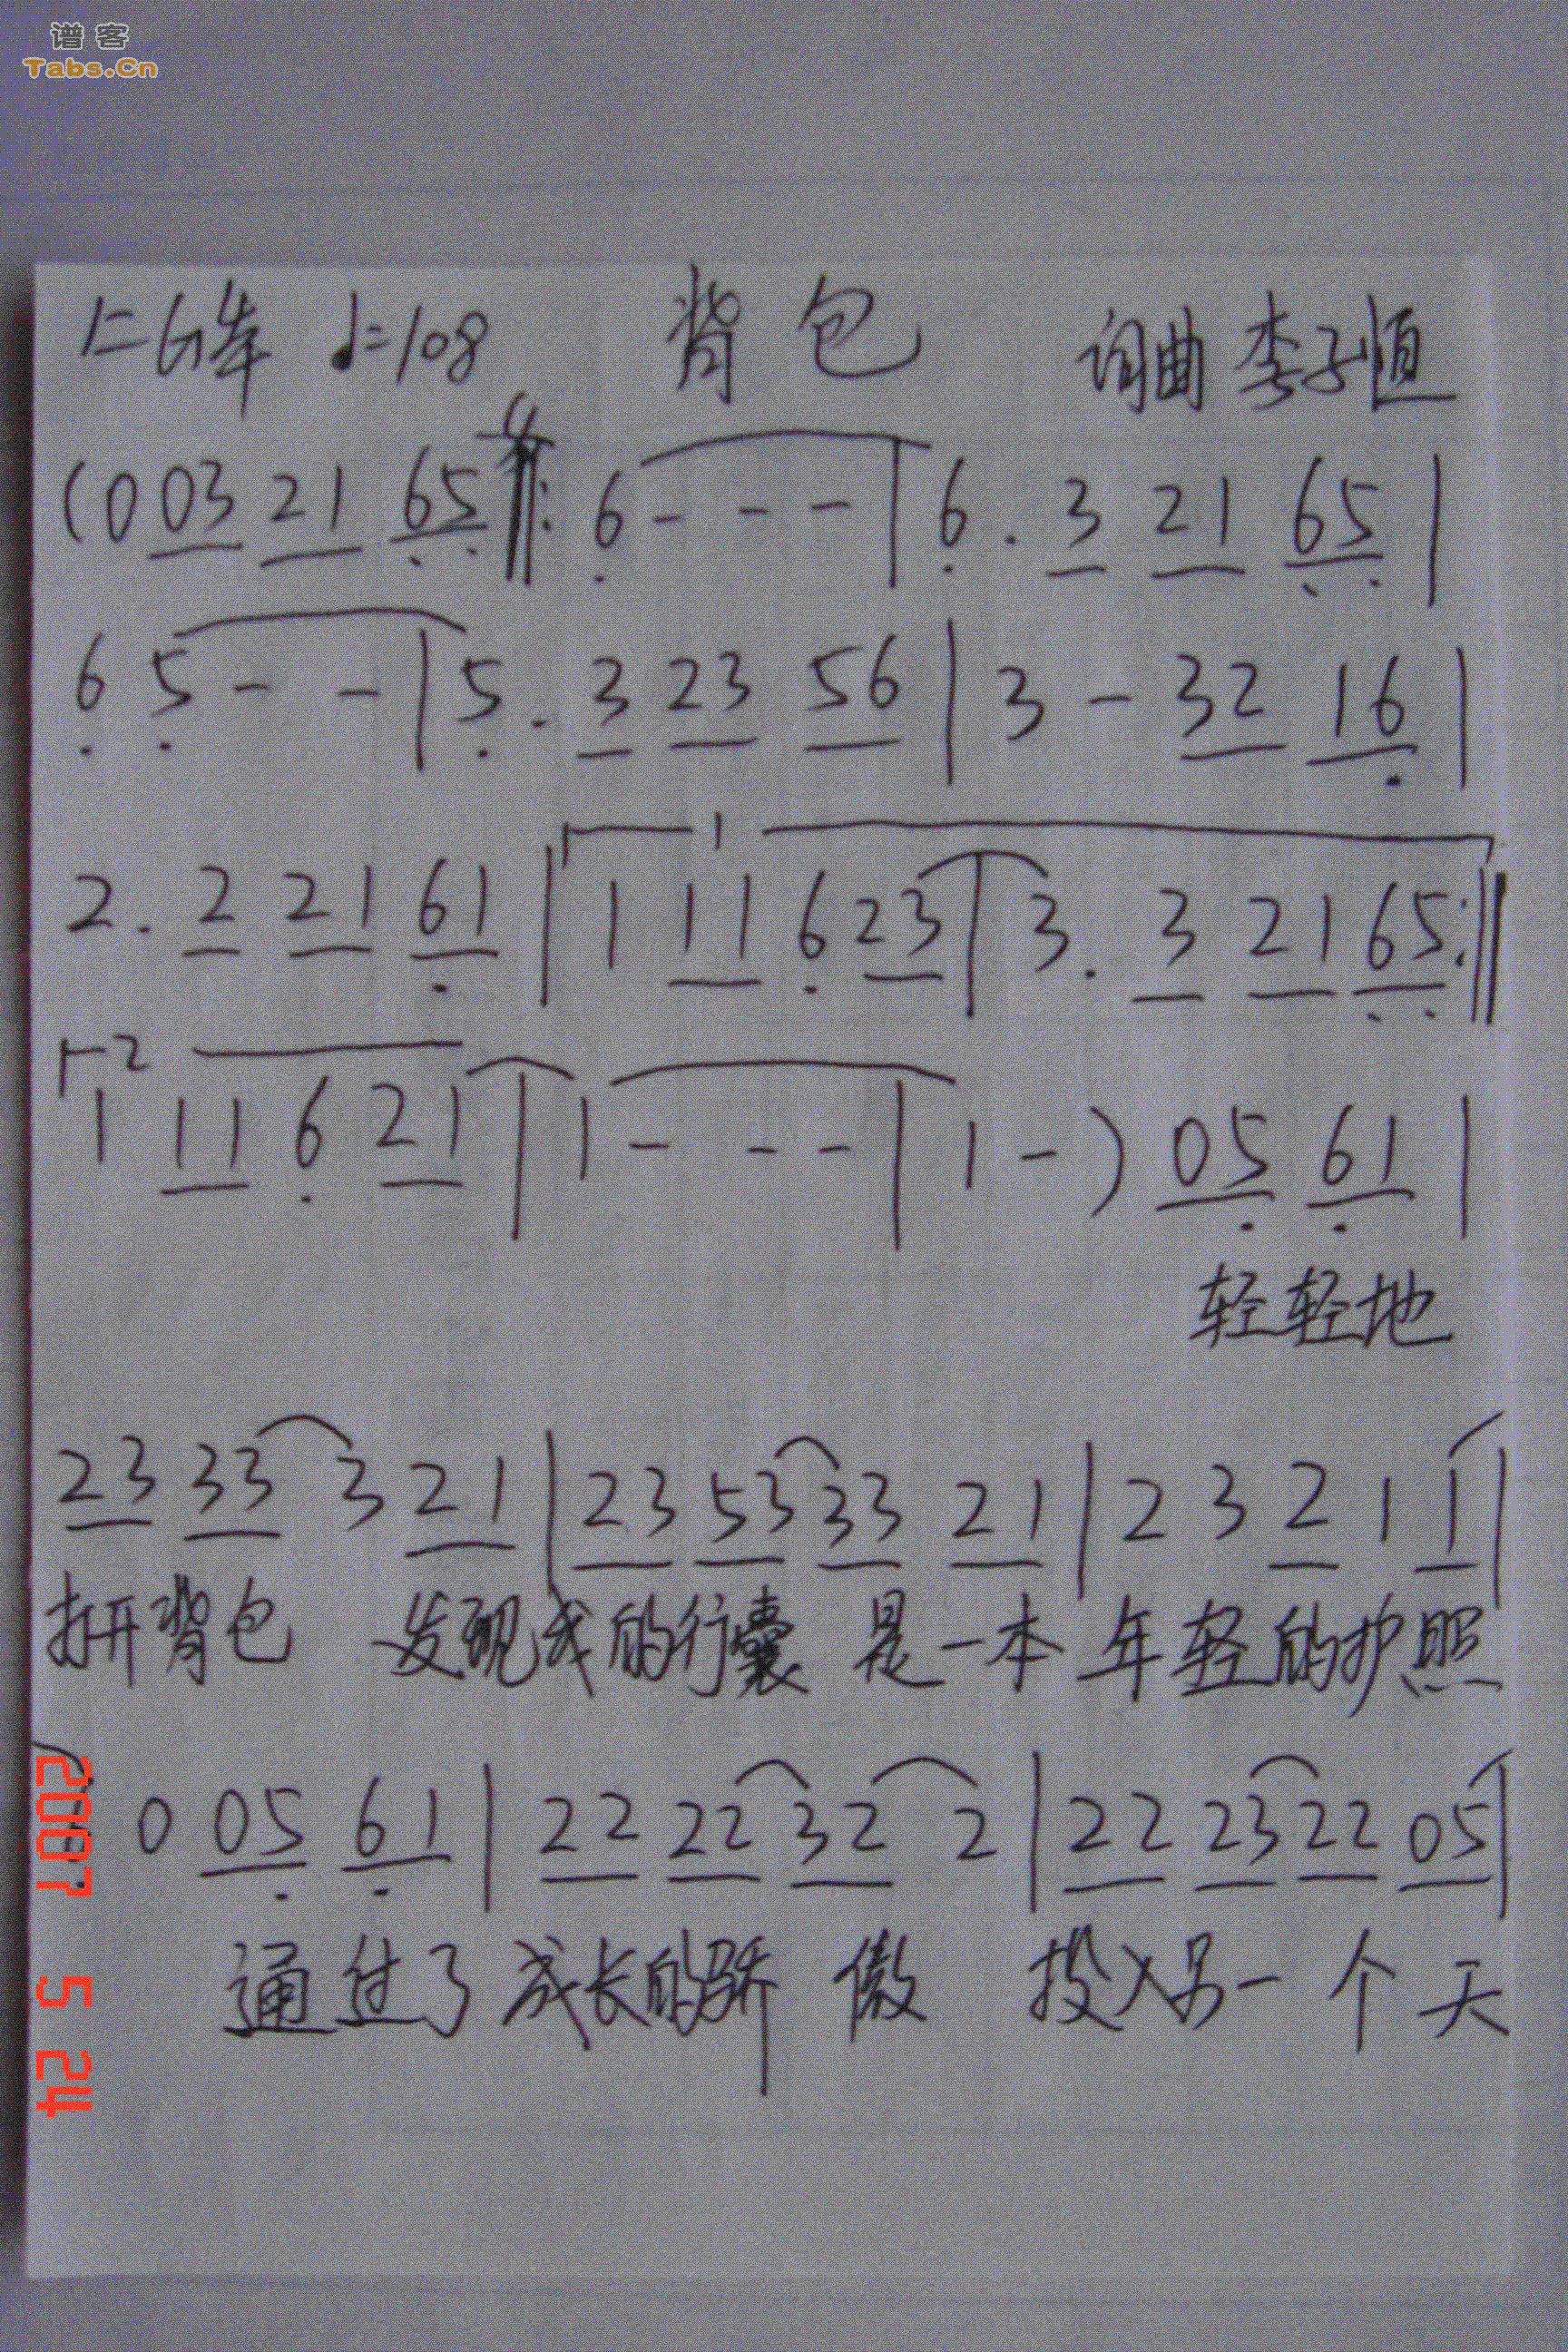 谱客
Tabs.Cn
1=G 4/4 ♩=108 背包 词曲 李子恒
(0 03 21 65 ‖: 6 - - - | 6 . 3 21 65 |
6 5 - - | 5 . 3 23 56 | 3 - 32 16 |
2 . 2 21 61 | 1 11 6 23 | 3 . 3 21 65 :‖
1 11 6 21 | 1 - - - | 1 - ) 05 61 |
轻轻地
23 33 3 21 | 23 53 33 21 | 2 3 2 1 1 |
打开背包 发现我的行囊 是一本 年轻的护照
0 05 61 | 22 22 32 2 | 22 23 22 05 |
通过了 成长的骄 傲 投入另一个天
2007 5 24